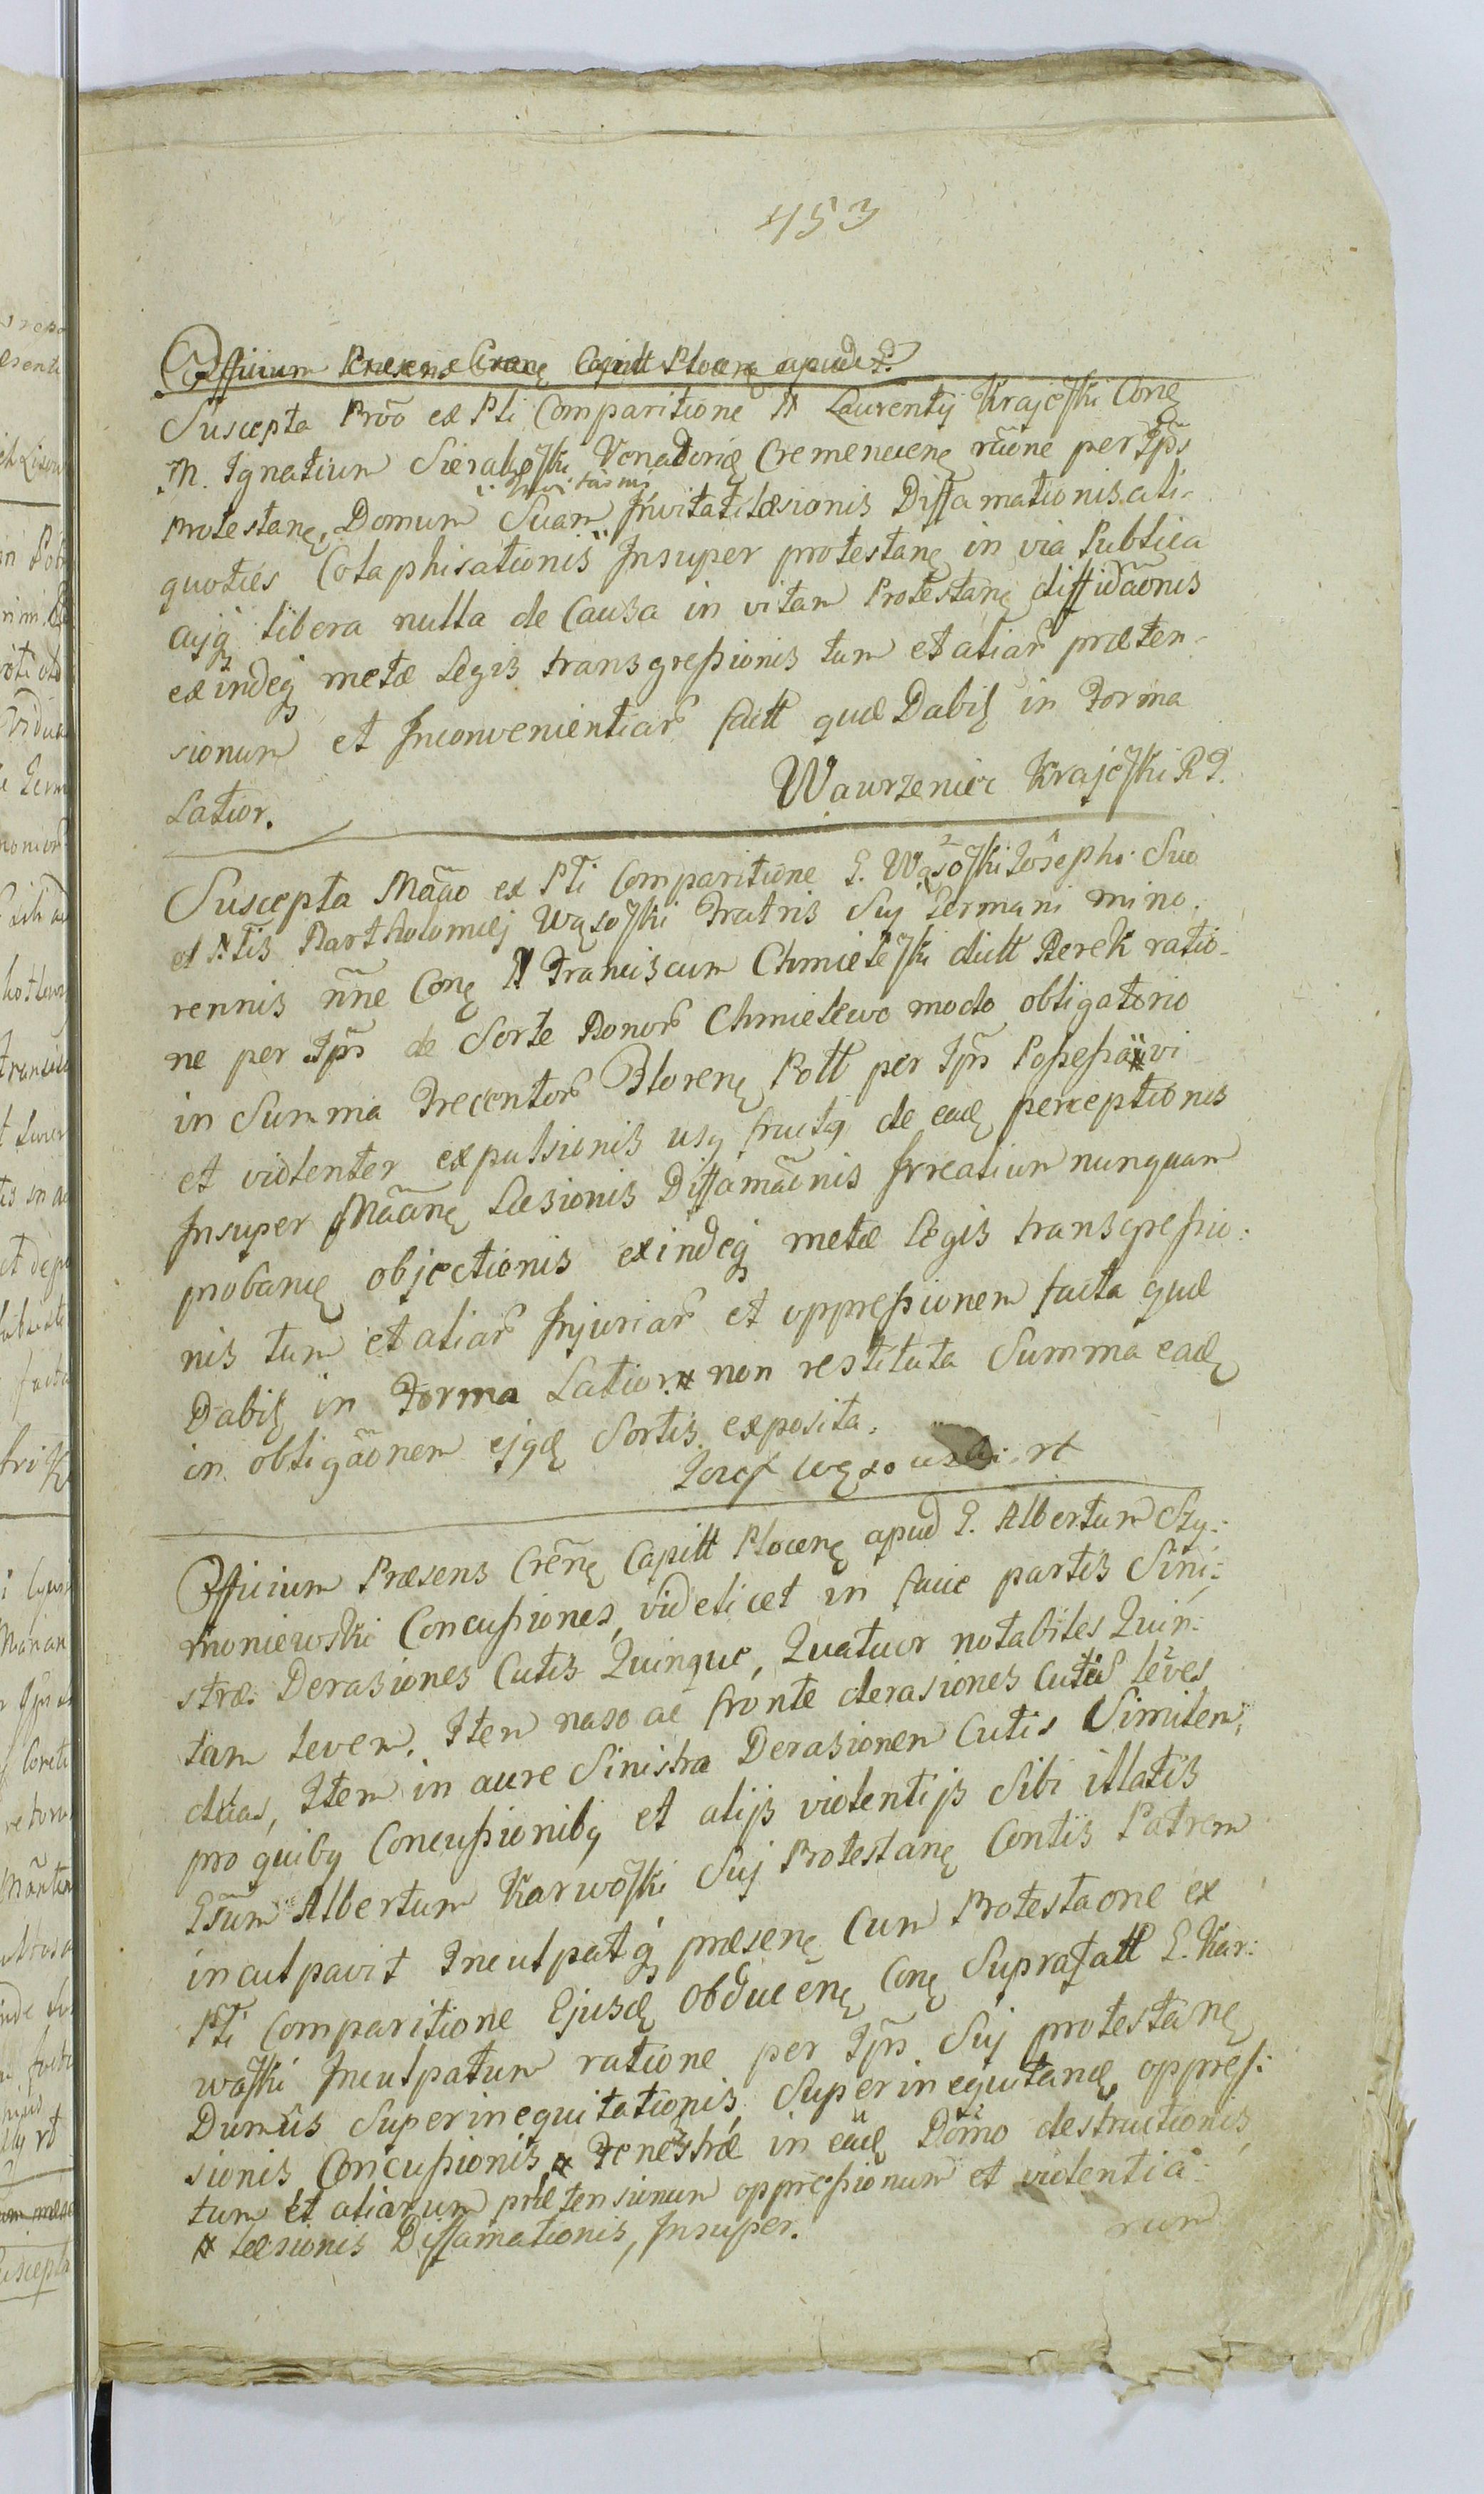 453
Officium Præsens Cren̄ę Capitt Plocenę apud
Suscepta Prõo ex Pti Comparitione N Laurentij Krajeſki Conę
M. Ignatium Sierakoſki Venatoriæ Cremenecenę rãone per Ips
protestanę, Domum Suam Invitati læsionis Diffamationis ali-
Invitãonis
quoties Colaphisationis Insuper protestanę in via Publica
acjꝗ libera nulla de Causa in vitam Protestanę diffidãonis
exindeꝗ metæ Legis transgreſsionis tum et aliar præten-
sionum et Inconvenientiar fact quæ Dabiꝉ in Forma
Latior. Wawrzeniec Krajeſki R P.
Suscepta Mãão ex Pti Comparitione G. Wąsoſki Josephi Suo
et Ntis Bartholomæj Wąsoſki Fratris Suj Germani mino,
rennis ñne Conę N Franciscum Chmieleſki dictt Berek ratio-
ne per Ipm de Sorte Bonor Chmielewo modo obligatorio
in Summa Trecentor Florenę Poll per Ipm Poſseſsa vi
et violenter expulsionis usꝗ fructꝗ de eadę perceptionis
Insuper Mãanę Læsionis Diffamãonis Irreatium nunquam
probanę objectionis exindeꝗ metæ Legis transgreſsio:
nis tum et aliar Injuriar et oppreſsionem facta quæ
Dabiꝉ in Forma Latior. # non restituta Summa eadę
in obligãonem ejꝗdę Sortis exposita.
Jozef Wąsowski rt
Officium Præsens Crẽnę Capitt Plocenę apud G. Albertum Szy-
moniewski Concuſsiones, videlicet in facie partis Sini-
stræ Derasiones Cutis Quinque, Quatuor notabiles Quin-
tam levem. Item naso ac fronte derasiones Cutis leves
duas, Item in aure Sinistra Derasionem Cutis Similem,
pro quibꝗ Concuſsionibꝗ et alijs violentijs Sibi illatis
Gsum Albertum Karwoſki Suj Protestanę Contis Patrem
inculpavit Inculpatꝗ præsenę Cum Protestaone ex
Pti Comparitione Ejusdę Obducenę Conę Suprafatt G. Kar:
woſki Inculpatum ratione per Ipm Suj protestanę
Domus Superinequitationis, Superinequitanę oppreſ:
sionis Concuſsionis, # Fenestræ in eadę Domo destructionis,
tum et aliarum prætensionum oppreſsionum et violentia-
rum
# læsionis Diffamationis, Insuper.